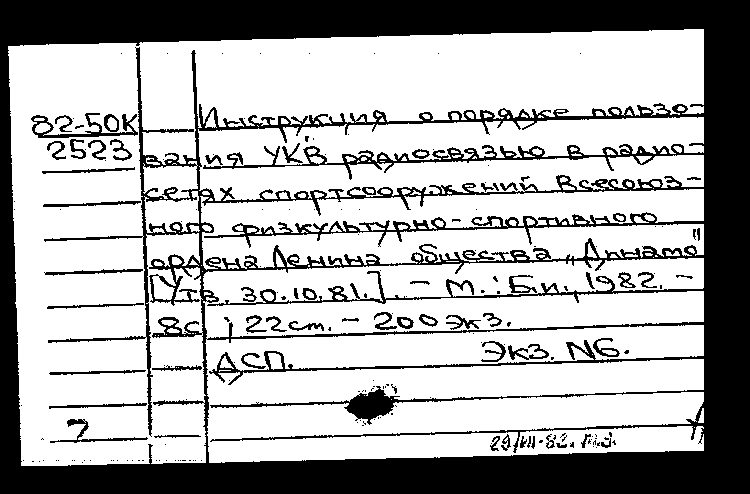 82-50К Инструкция о порядке пользо-
2523 вания УКВ радиосвязью в радио-
сетях спортсооружений Всесоюз-
ного физкультурно-спортивного
ордена Ленина общества „Динамо"
[Утв. 30.10.81.]. - М.: Б.и., 1982. -
8с ; 22см. - 200 экз.
ДСП. Экз. N6.
7
29/VII-82.